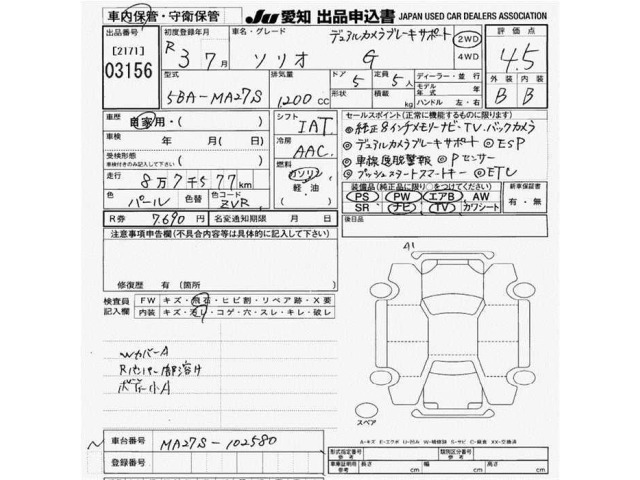 車内保管・守衛保管
JU 愛知 出品申込書 JAPAN USED CAR DEALERS ASSOCIATION
出品番号
[2171]
03156
初度登録年月
R3 7月
車名・グレード
デュアルカメラブレーキサポート
ソリオ G
2WD
4WD
評価点
4.5
型式
5BA-MA27S
排気量
1,200 CC
ドア
5
形状
定員
5人
積載
kg
ディーラー・並行
モデル年式 年
ハンドル 左・右
外装 内装
B B
車歴
自家用・( )
車検
年 月( 日)
受検形態
車検付きのみ記入して下さい
( )
走行
8万7千577km
色
パール
色替
色コード
ZVR
シフト
IAT
冷房
AAC
燃料
ガソリン
軽・油
( )
セールスポイント(正常に機能するものに限ります)
◎純正8インチメモリーナビ・TV.バックカメラ
◎デュアルカメラブレーキサポート ◎ESP
◎車線逸脱警報 ◎Pセンサー
◎プッシュスタートスマートキー ◎ETC
装備品(純正品に限り○をつけてください)
PS PW エアB AW
SR ナビ TV カワシート
新車保証書
有・無
R券 7,690円 名変通知期限 月 日
後日品
注意事項申告欄(不具合内容等は具体的に記入して下さい)
修復歴 有(箇所 )
検査員
記入欄
FW キズ・飛石・ヒビ割・リペア跡・X要
内装 キズ・汚レ・コゲ・穴・スレ・キレ・破レ
A1
WカバーA
ボデー小A
スペア
A-キズ E-エクボ U-凹み W-補修跡 S-サビ C-腐食 XX-交換済
車台番号 MA27S-102580
登録番号
形式指定番号
参考
類別区分番号
参考
車庫証明用
参考
長さ cm 幅 cm 高さ cm